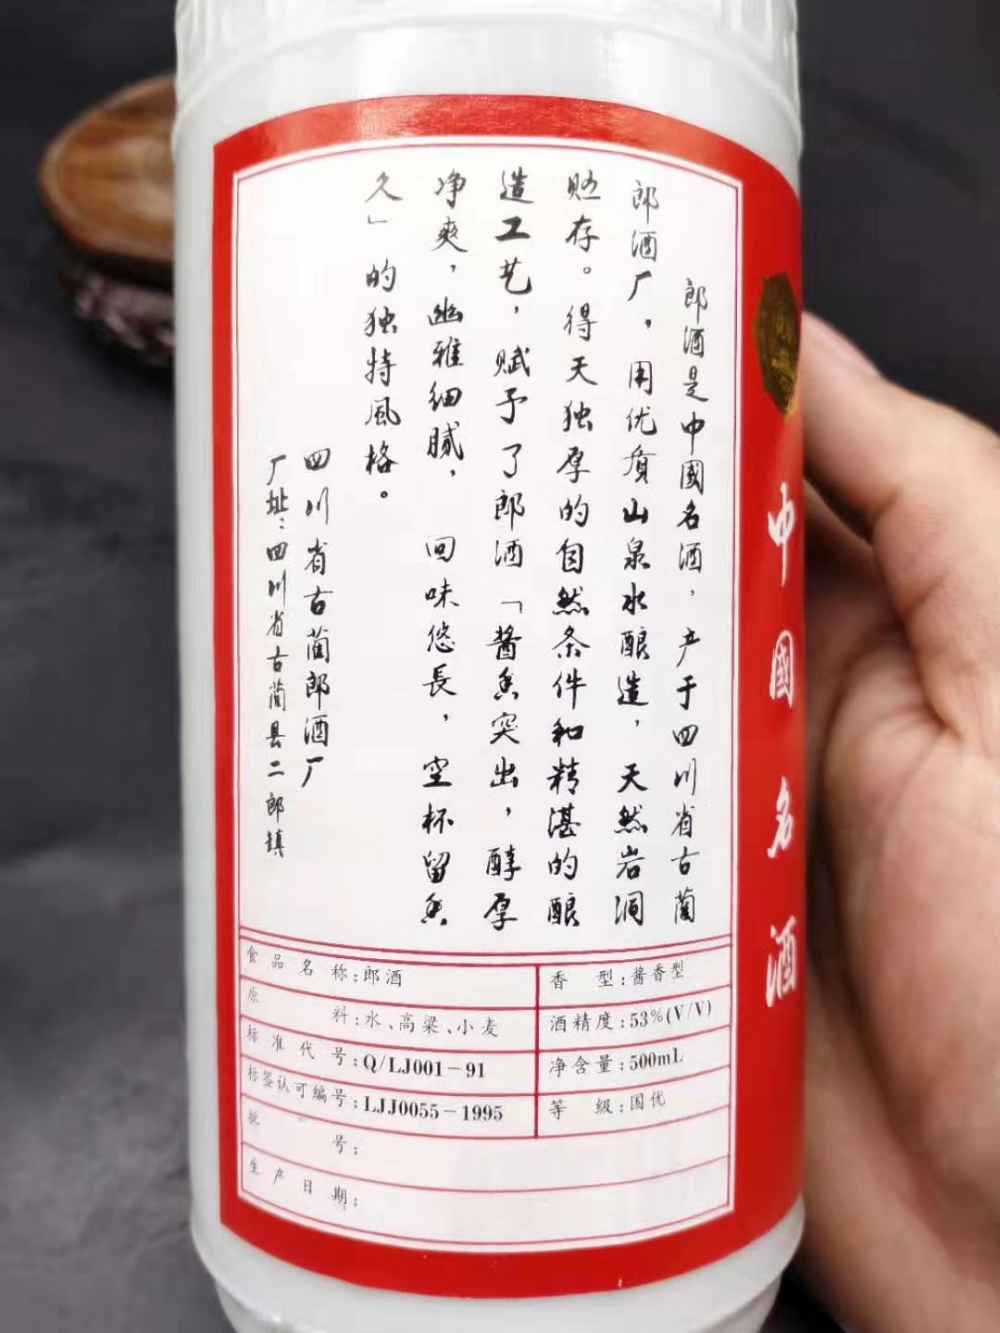 郎酒是中國名酒，产于四川省古蔺
郎酒厂，用优质山泉水酿造，天然岩洞
贮存。得天独厚的自然条件和精湛的酿
造工艺，赋予了郎酒「酱香突出，醇厚
净爽，幽雅细腻，回味悠長，空杯留香
久」的独特風格。
四川省古蔺郎酒厂
厂址：四川省古蔺县二郎镇
食品名称：郎酒
香型：酱香型
原料：水、高粱、小麦
酒精度：53%(V/V)
标准代号：Q/LJ001－91
净含量：500mL
标签认可编号：LJJ0055－1995
等级：国优
批号：
生产日期：
中國名酒